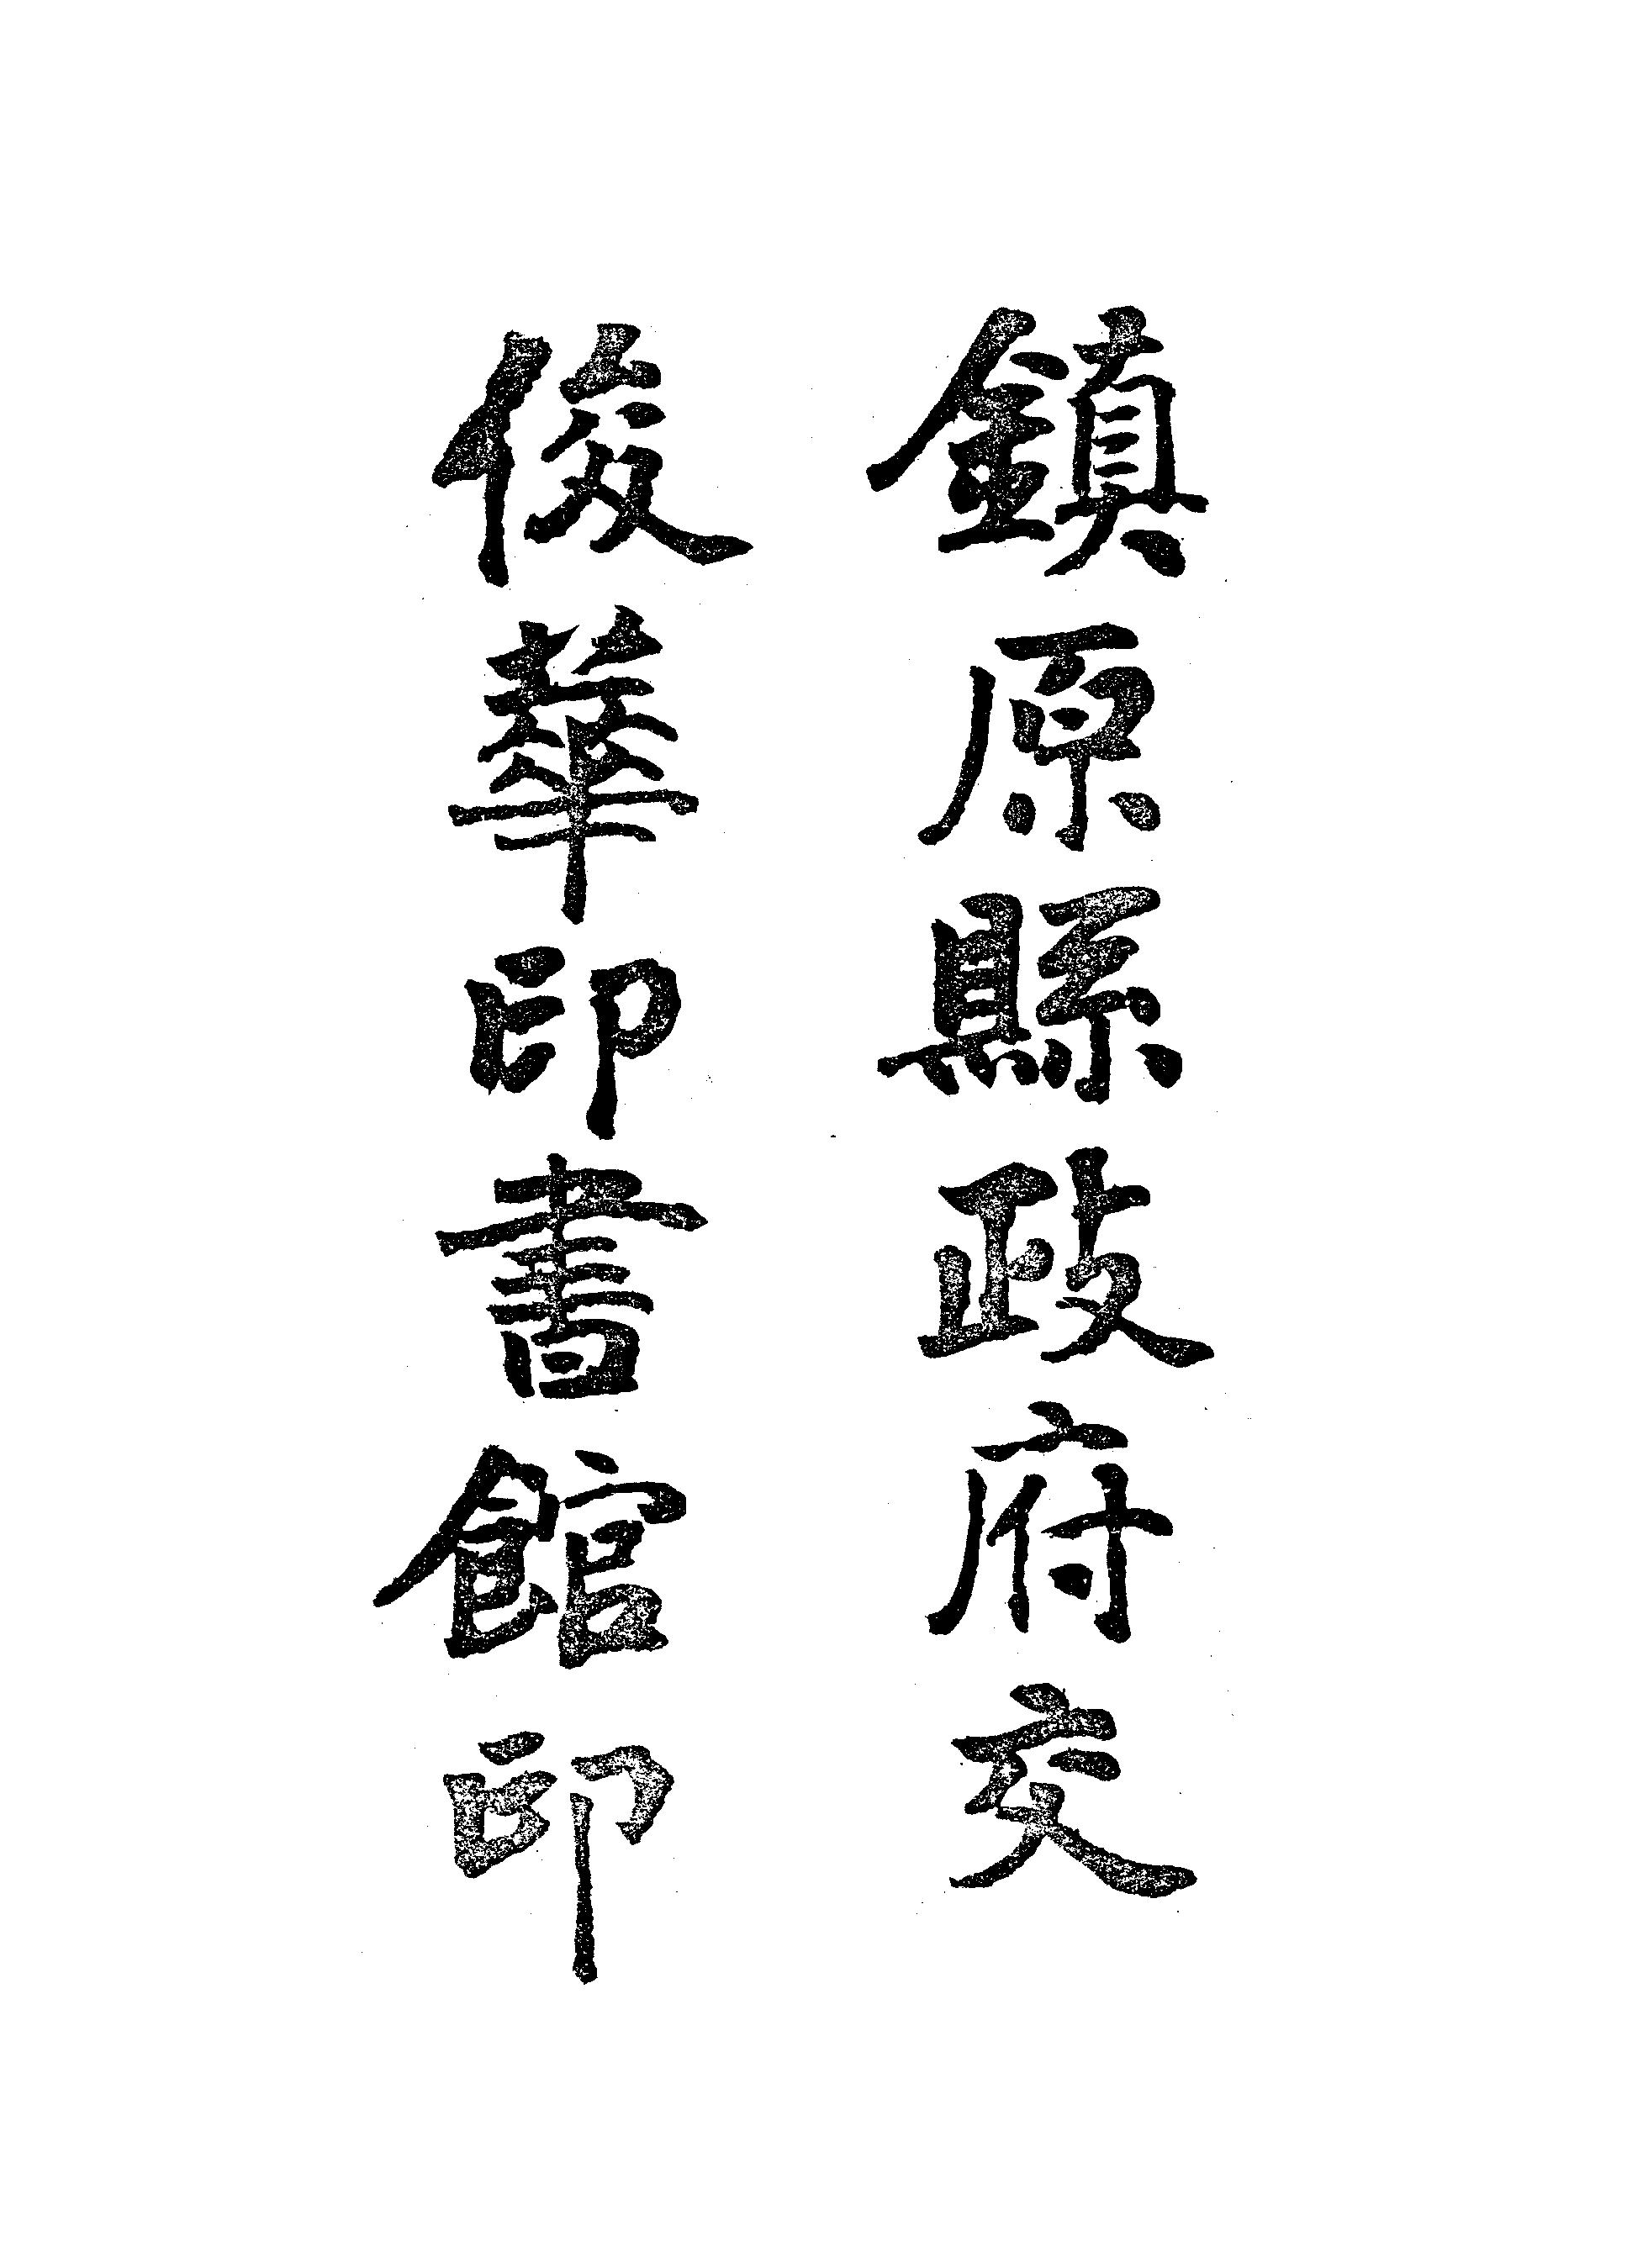 鎮原縣政府交
俊華印書館印